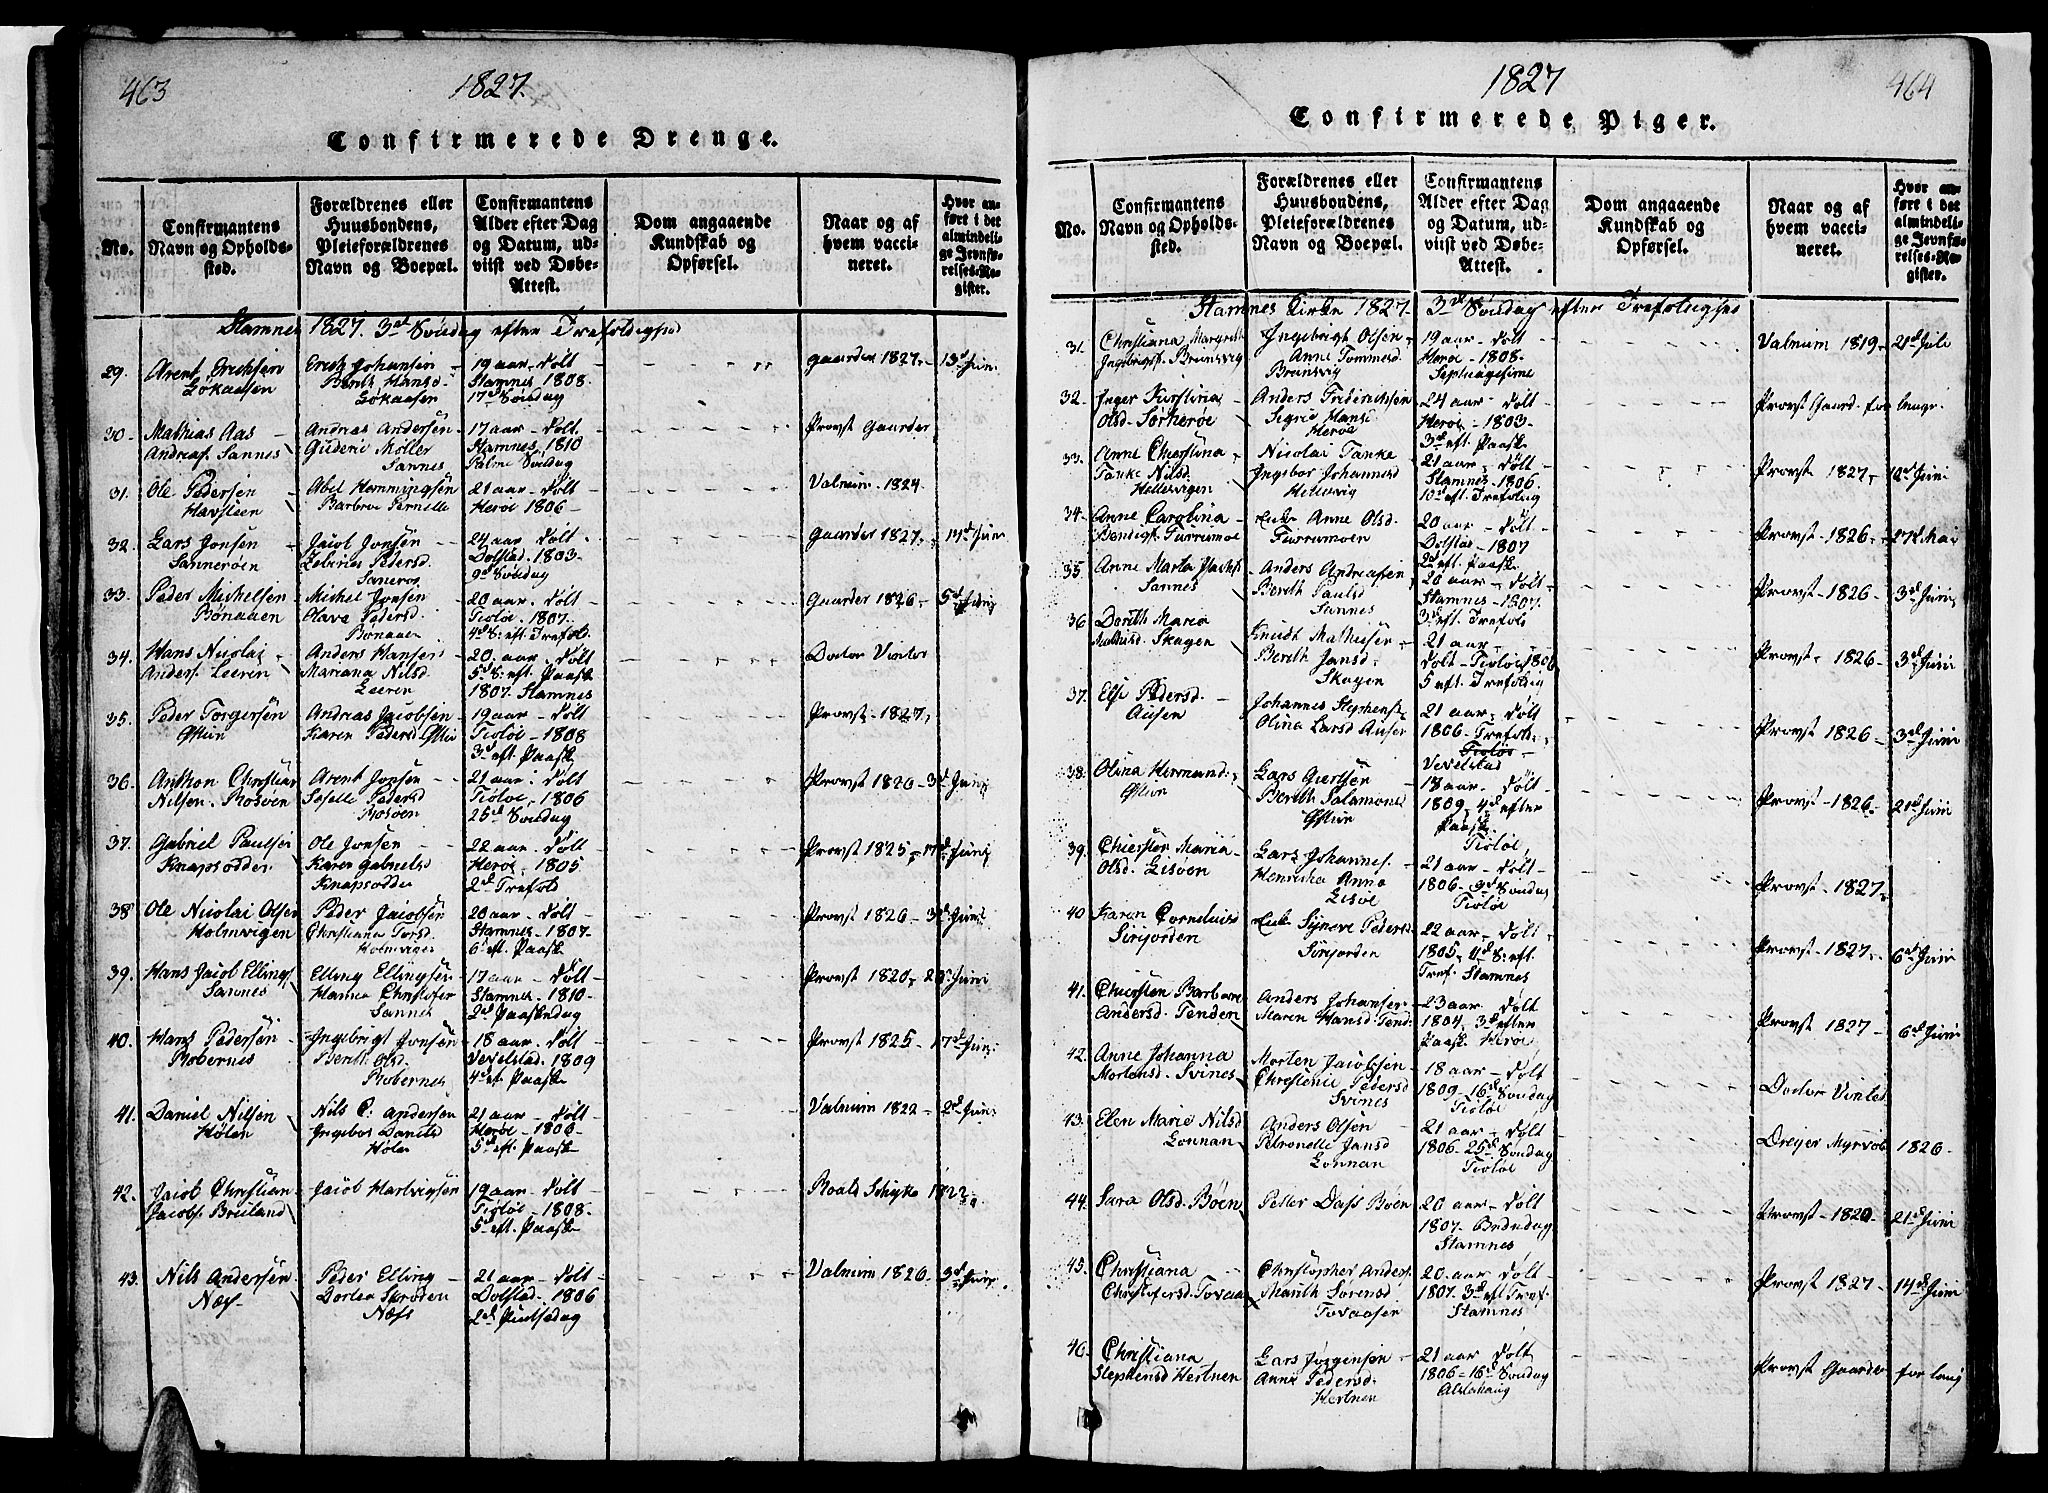 463
1827.
Confirmerede Drenge.
No.
Confirmantens
Navn og Opholds-
sted.
Forældrenes eller
Huusbondens,
Pleieforældrenes
Navn og Boepæl.
Confirmantens
Alder efter Dag
og Datum, ud-
viist ved Døbe-
Attest.
Dom angaaende
Kundskab og
Opførsel.
Naar og af
hvem vacci-
neret.
Hvor an-
ført i det
almindeli-
ge Jevnfø-
relses-Re-
gister.
Stamnes 1827. 3d Søndag efter Trefoldighed
29. Arent Erichsen
Løkaasen
Erich Johansen
Berith Hansd
Løkaasen
19 aar - Døbt
Stamnes 1808.
17d Søndag
Gaarder 1827. 13d Juni
30. Mathias Aas
Andreas. Sannes
Andreas Andersen
Møller
Sannes
17 aar - Døbt.
Stamnes, 1810
Palme Søndag
Provst Gaarder
31. Ole Pedersen
Havsteen
Abel Hemmingsen
Barbroe Pernelle
21 aar - Døbt
Herøe 1806 -
Valnum - 1824
32. Lars Jonsen
Sannerøen
Jacob Jonsen
Pedersd
24 aar - Døbt.
Dolstad. 1803.
9d Søndag
Gaarder 1827. 14d Juni
33. Peder Michelsen
Bønaaen
Michel Jonsen
Olava Pedersd.
Bønaaen
20 aar. Døbt
Tiøtøe, 1807.
4d S: eft. Trefold.
Gaarder 1826. 5d
34. Hans Nicolai
Anders. Leeren
Anders Hansen
Mariana Nilsd
Leeren
20. aar - Døbt
5d S: eft. Paask
1807. Stamnes
Doctor Vinter
35. Peder Torgersen
Andreas Jacobsen
Karen Pedersd
19 aar - Døbt
Tiøtøe - 1808
3d eft. Paask
Provst - 1827.
36. Anthon Christian
Nilsen. Rosøen
Arent Jonsen
Pedersd
Rosøen
21 aar. Døbt
Tiøtøe, 1806
25d Søndag
Provst 1826 - 3d Juni
37. Gabriel Paulsen
Knapsodden
Ole Jonsen
Karen Gabrielsd
Knapsodde
22 aar. Døbt
Herøe, 1805
2d Trefold
Provst 1825. 17d Juni
38 Ole Nicolai Olsen
Holmvigen
Peder Jacobsen
Christiana Torsd.
Holmvigen
20 aar - Døbt
Stamnes - 1807.
6d eft. Paask
Provst 1826 - 3d Juni
39. Hans Jacob Ellings
Sannes
Elling Ellingsen
Hanna Christofer
Sannes
17 aar - Døbt
Stamnes. 1810.
2d Paaskedag
Provst 1820. Juni
40. Hans Pedersen
Robernes
Ingebrigt Jonsen
Berith Olsd
Robernes
18 aar. Døbt.
Vevelstad. 1809
4d eft. Paask
Provst 1825 - 17d Juni
41. Daniel Nilsen
Hølen
Nils C: Andersen
Ingebor Danielsd
Hølen
21 aar - Døbt
Herøe - 1806 -
5d eft. Paask
Valnum 1822 - 2d Juni
42. Jacob Christian
Jacobs. Breiland
Jacob Hartvigsen
19 aar - Døbt
Tiøtøe - 1808.
5d eft. Paask
Roald Schytte 1822.
43. Nils Andersen
Næss
Peder Elling
Dortea
Næss
21 aar - Døbt
Dolstad. 1806
2d Pintsedag
Valnum 1826. 3d Juni
1827
464
Confirmerede Piger.
No.
Confirmantens
Navn og Opholds-
sted.
Forældrenes eller
Huusbondens,
Pleieforældrenes
Navn og Boepæl.
Confirmantens
Alder efter Dag
og Datum, ud-
viist ved Døbe-
Attest.
Dom angaaende
Kundskab og
Opførsel.
Naar og af
hvem vacci-
neret.
Hvor an-
ført i det
almindeli-
ge Jevnfø-
relses-Re-
gister.
Stamnes Kirke 1827. 3d Søndag efter Trefoldighed
31. Christiana Margreth
Brunsvig
Ingebrigt Olsen
Anne Tommesd
Brunsvig
19 aar - Døbt
Herøe - 1808.
Septuagesime
Valnum 1819. 21d Juli
32. Inger Kirstina
Olsd. Sørherøe
Anders Friderichsen
Sigrie Hansd
Herøe
24 aar - Døbt
Herøe - 1803.
3d eft. Paask
Provst Gaard. for længe.
33. Anne Chierstina
Tanke Nilsd.
Hellesvigen
Nicolai Tanke
Ingebor Johannesd
Hellesvig
21 aar - Døbt
Stamnes. 1806.
10d eft. Trefoldig
Provst 1827. 12d Juni
34. Anne Carolina
Furrumoe
Enke Anne Olsd.
Furrumoen
20 aar - Døbt
Dolstad - 1807
2d eft. Paask
Provst - 1826. 27d Mai
35. Anne Marta
Sannes
Anders Andreasen
Berith Paulsd
Sannes
20 aar - Døbt -
Stamnes - 1807.
3d eft. Trefold
Provst - 1826. 3d Juni
36 Dorith Maria
Mathisd. Skagen
Knudt Mathisen
Berith Jansd.
Skagen
21 aar -
Døbt - Tiøtøe 1806
5 eft. Trefoldig
Provst - 1826 - 3d Juni
37. Else Pedersd.
Ausen
Johannes Stephens.
Olina Larsd Ausen
21 aar, Døbt
1806 - Trefold:
Tiøtøe
Vevelstad
Provst - 1826 - 3d Juni
38. Olina Hermansd.
Lars Giertsen
Berith Salamonsd
18 aar. Døbt.
1809. 4d efter
Paask
Tiøtøe,
Provst - 1826. 21d Juni
39. Chierster Maria
Olsd. Lisøen
Lars Johannes.
Henricha Anna
Lisøe
21 aar - Døbt
1806 - 9d Søndag
Tiøtøe
Provst - 1827.
40 Karen Corneliusd
Sørjorden
Enke Synove Pedersd
Sørjorden
22 aar - Døbt -
1805. 11d S: eft.
Tref. Stamnes
Provst - 1827. 6d Juni
41. Chiersten Barbara
Andersd. Tenden
Anders Johansen
Maren Hansd. Tend.
23 aar - Døbt
1804. 3d efter
Paask Herøe
Provst 1827 - 6d Juni
42. Anne Johanna
Mortensd. Svines
Morten Jacobsen
Christenie Pedersd
Svines
18 aar - Døbt
1809 - 16d Søndag
Tiøtøe
Doctor Vinter
43. Elen Marie Nilsd
Lonnan
Anders Olsen
Petronelle Jansd
Lonnan
21 aar - Døbt
1806 - 25d Søndag
Tiøtøe
Dreyer Myrvold 1826.
44. Sara Olsd. Bøen
Petter Dass Bøen
20 aar - Døbt
1807. Bededag
Stamnes
Provst - 1820 - 21d Juni
45. Christiana
Christofersd. Tovaas
Christopher Anders.
Marith Sørensd
Tovaasen
20. aar - Døbt -
1807. 3d eft Tref.
Stamnes
Provst 1827 - 14d Juni
46. Christiana
Stephensd Hestnen
Lars Jørgensen
Anne Pedersd.
Hestnen
21 aar Døbt
1806 - 16d Søndag
Alstahoug
Provst Gaarder for lang